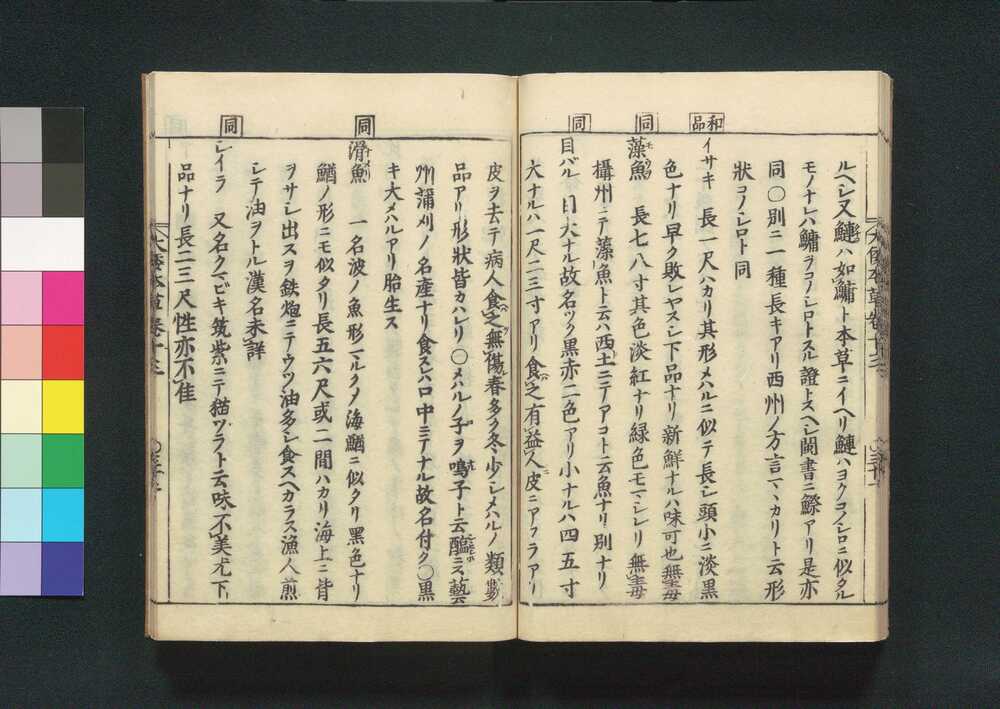 ルヘシ又鰱ハ如鱅ト本草ニイヘリ鰱ハヨクコノシロニ似タル
モノナレハ鱅ヲコノシロトスル證トスヘシ閩書ニ鰶アリ是亦
同〇別ニ一種長キアリ西州ノ方言マヽカリト云形
狀コノシロト同
和品
イサキ 長一尺ハカリ其形メハルニ似テ長シ頭小ニ淡黒
色ナリ早ク敗レヤスシ下品ナリ新鮮ナルハ味可也無毒
同
藻魚 長七八寸其色淡紅ナリ緑色モマシレリ無毒
攝州ニテ藻魚ト云ハ西土ニテアコト云魚ナリ別ナリ
同
目バル 目大ナル故名ツク黒赤二色アリ小ナルハ四五寸
大ナルハ一尺二三寸アリ食之有益人皮ニアフラアリ
皮ヲ去テ病人食之無傷春多ク冬少シメハルノ類數
品アリ形狀皆カハレリ〇メハルノ子ヲ鳴子ト云醢ニス藝
州蒲刈ノ名産ナリ食スレハ口中ニテナル故名付ク〇黒
キ大メハルアリ胎生ス
同
滑魚 一名波ノ魚形マルク乄海鰌ニ似タリ黒色ナリ
鰌ノ形ニモ似タリ長五六尺或二間ハカリ海上ニ背
ヲサシ出スヲ鉄炮ニテウツ油多シ食スヘカラス漁人煎
シテ油ヲトル漢名未詳
同
シイラ 又名クマビキ筑紫ニテ猫ヅラト云味不美尤下
品ナリ長二三尺性亦不佳
大和本草卷十三